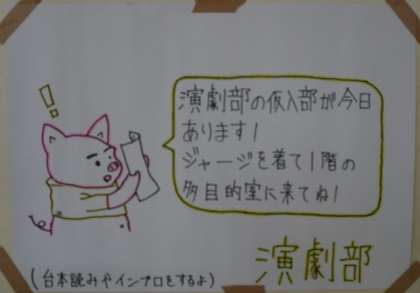 !
演劇部の仮入部が今日
あります!
ジャージを着て1階の
多目的室に来てね!
演劇部
(台本読みやインプロをするよ)